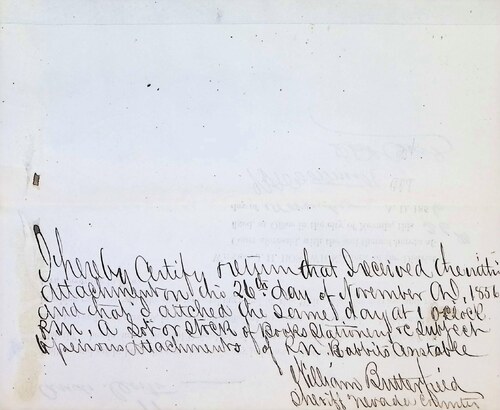 I hereby Certify & return that I received the within
Attachment on the 26th day of November A.D. 1856
and that I attched the same day at 1 oclock
P.M. a lot or stock of Books Stationery &c Subject
to previous Attachments of Constable
William Butterfield
Sheriff Nevada County